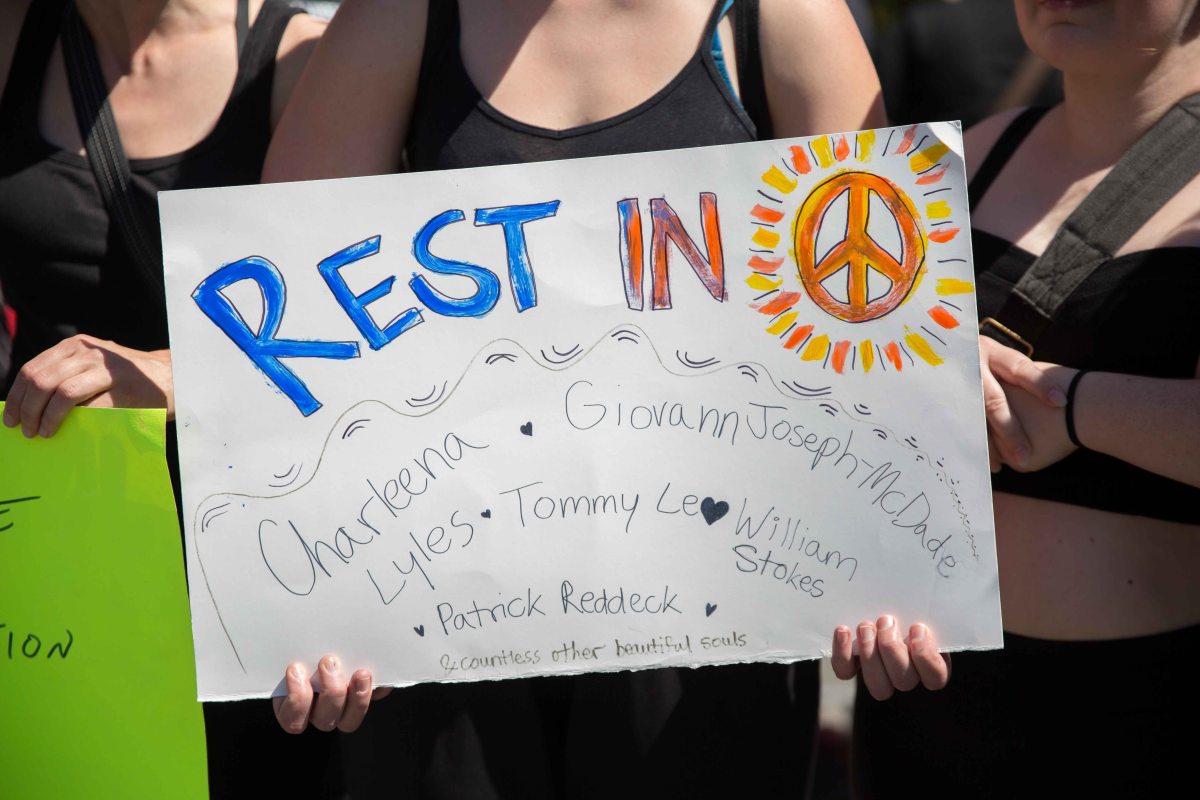 REST IN
Charleena
Lyles
Giovann Joseph-McDade
Tommy Le
William
Stokes
Patrick Reddeck
& countless other beautiful souls
TION